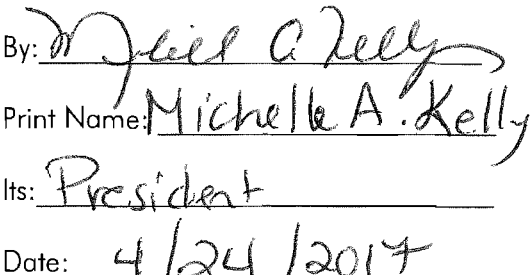 By: Michelle A Kelly
Print Name: Michelle A. Kelly
Its: President
Date: 4/24/2017